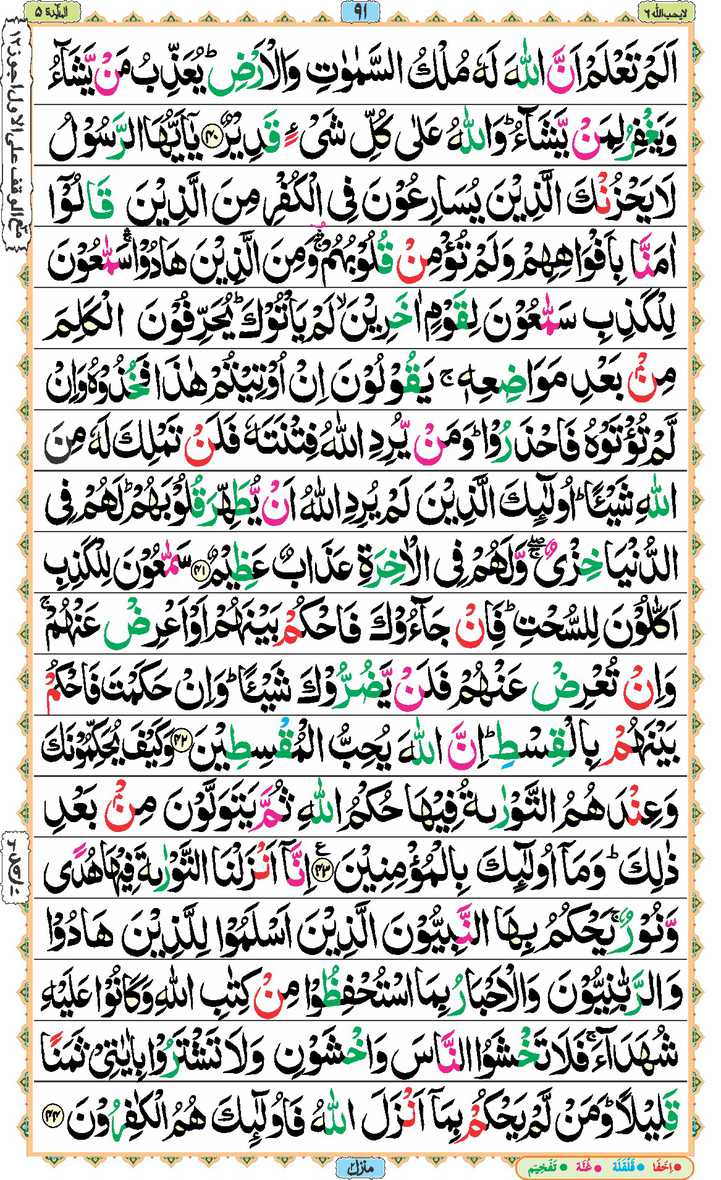 لایحب الله ٦
٩١
المآىِٕدة ٥
اَلَمْ تَعْلَمْ اَنَّ اللّٰهَ لَهٗ مُلْكُ السَّمٰوٰتِ وَالْاَرْضِ ؕ یُعَذِّبُ مَنْ یَّشَآءُ
وَیَغْفِرُ لِمَنْ یَّشَآءُ ؕ وَاللّٰهُ عَلٰی كُلِّ شَیْءٍ قَدِیْرٌ ﴿۴۰﴾ یٰۤاَیُّهَا الرَّسُوْلُ
لَا یَحْزُنْكَ الَّذِیْنَ یُسَارِعُوْنَ فِی الْكُفْرِ مِنَ الَّذِیْنَ قَالُوْۤا
اٰمَنَّا بِاَفْوَاهِهِمْ وَلَمْ تُؤْمِنْ قُلُوْبُهُمْ ۛۚ وَمِنَ الَّذِیْنَ هَادُوْا ۛۚ سَمّٰعُوْنَ
لِلْكَذِبِ سَمّٰعُوْنَ لِقَوْمٍ اٰخَرِیْنَ ۙ لَمْ یَاْتُوْكَ ؕ یُحَرِّفُوْنَ الْكَلِمَ
مِنْۢ بَعْدِ مَوَاضِعِهٖ ۚ یَقُوْلُوْنَ اِنْ اُوْتِیْتُمْ هٰذَا فَخُذُوْهُ وَاِنْ
لَّمْ تُؤْتَوْهُ فَاحْذَرُوْا ؕ وَمَنْ یُّرِدِ اللّٰهُ فِتْنَتَهٗ فَلَنْ تَمْلِكَ لَهٗ مِنَ
اللّٰهِ شَیْـًٔا ؕ اُولٰٓىِٕكَ الَّذِیْنَ لَمْ یُرِدِ اللّٰهُ اَنْ یُّطَهِّرَ قُلُوْبَهُمْ ؕ لَهُمْ فِی
الدُّنْیَا خِزْیٌ ۖۚ وَّلَهُمْ فِی الْاٰخِرَةِ عَذَابٌ عَظِیْمٌ ﴿۴۱﴾ سَمّٰعُوْنَ لِلْكَذِبِ
اَكّٰلُوْنَ لِلسُّحْتِ ؕ فَاِنْ جَآءُوْكَ فَاحْكُمْ بَیْنَهُمْ اَوْ اَعْرِضْ عَنْهُمْ ۚ
وَاِنْ تُعْرِضْ عَنْهُمْ فَلَنْ یَّضُرُّوْكَ شَیْـًٔا ؕ وَاِنْ حَكَمْتَ فَاحْكُمْ
بَیْنَهُمْ بِالْقِسْطِ ؕ اِنَّ اللّٰهَ یُحِبُّ الْمُقْسِطِیْنَ ﴿۴۲﴾ وَكَیْفَ یُحَكِّمُوْنَكَ
وَعِنْدَهُمُ التَّوْرٰىةُ فِیْهَا حُكْمُ اللّٰهِ ثُمَّ یَتَوَلَّوْنَ مِنْۢ بَعْدِ
ذٰلِكَ ؕ وَمَاۤ اُولٰٓىِٕكَ بِالْمُؤْمِنِیْنَ ﴿۴۳﴾ ع اِنَّاۤ اَنْزَلْنَا التَّوْرٰىةَ فِیْهَا هُدًی
وَّنُوْرٌ ۚ یَحْكُمُ بِهَا النَّبِیُّوْنَ الَّذِیْنَ اَسْلَمُوْا لِلَّذِیْنَ هَادُوْا
وَالرَّبّٰنِیُّوْنَ وَالْاَحْبَارُ بِمَا اسْتُحْفِظُوْا مِنْ كِتٰبِ اللّٰهِ وَكَانُوْا عَلَیْهِ
شُهَدَآءَ ۚ فَلَا تَخْشَوُا النَّاسَ وَاخْشَوْنِ وَلَا تَشْتَرُوْا بِاٰیٰتِیْ ثَمَنًا
قَلِیْلًا ؕ وَمَنْ لَّمْ یَحْكُمْ بِمَاۤ اَنْزَلَ اللّٰهُ فَاُولٰٓىِٕكَ هُمُ الْكٰفِرُوْنَ ﴿۴۴﴾
منزل ٢
اِخفَا قَلْقَلَة غُنَّة تَفْخِیْم